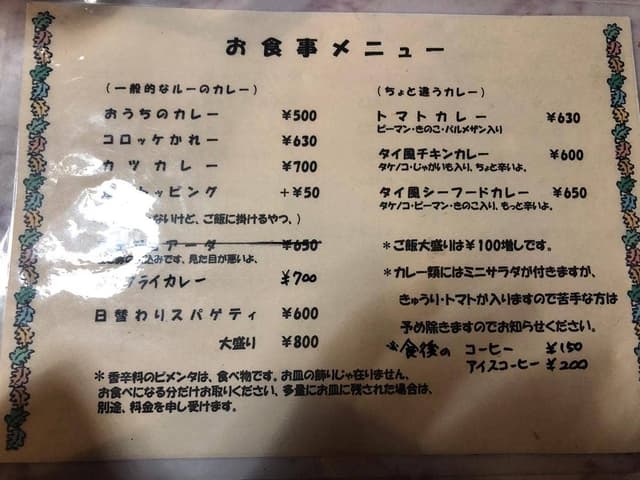 お食事メニュー
(一般的なルーのカレー)
おうちのカレー ¥500
コロッケかれー ¥630
カツカレー ¥700
トッピング +¥50
ないけど、ご飯に掛けるやつ、)
アーダ ¥650
込みです、見た目が悪いよ、
ライカレー ¥700
日替わりスパゲティ ¥600
大盛り ¥800
*香辛料のピメンタは、食べ物です。お皿の飾りじゃ在りません、
お食べになる分だけお取りください、多量にお皿に残された場合は、
別途、料金を申し受けます。
(ちょと違うカレー)
トマトカレー ¥630
ピーマン・きのこ・パルメザン入り
タイ風チキンカレー ¥600
タケノコ・じゃがいも入り、ちょと辛いよ、
タイ風シーフードカレー ¥650
タケノコ・ピーマン・きのこ入り、もっと辛いよ、
*ご飯大盛りは¥100増しです。
*カレー類にはミニサラダが付きますが、
きゅうり・トマトが入りますので苦手な方は
予め除きますのでお知らせください。
※食後の コーヒー ¥150
アイスコーヒー ¥200